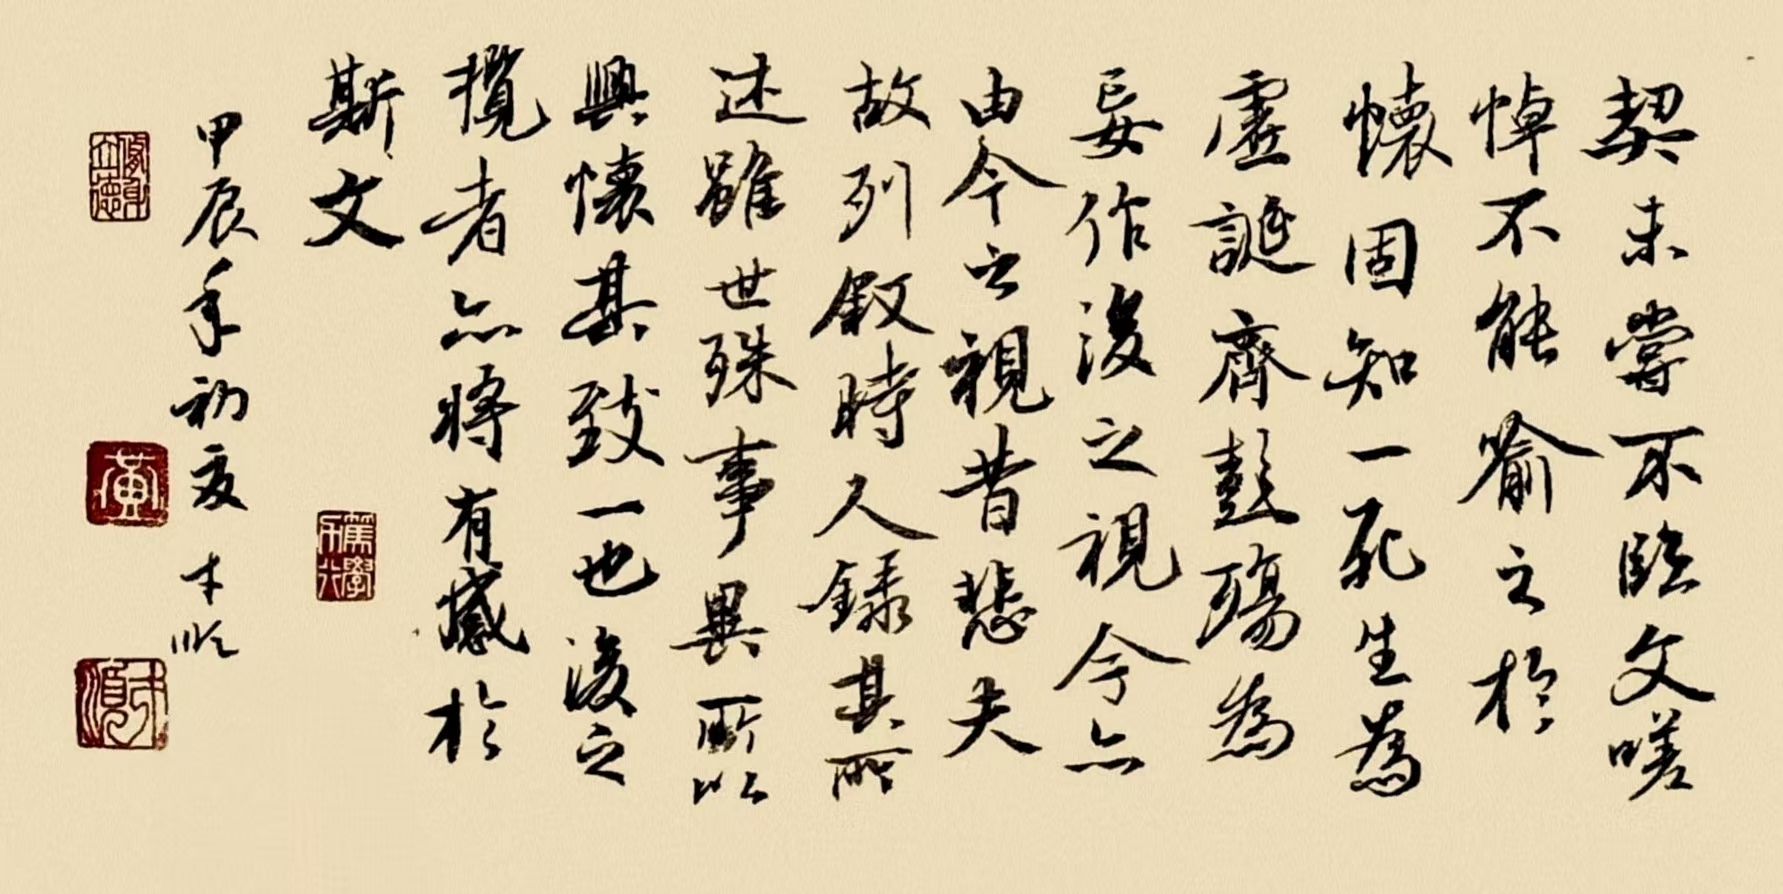 契未嘗不臨文嗟
悼不能喻之於
懷固知一死生為
虛誕齊彭殤為
妄作後之視今亦
由今之視昔悲夫
故列敘時人錄其所
述雖世殊事異所以
興懷其致一也後之
攬者亦將有感於
斯文
篤學
甲辰年初夏 本順
修身立德
黄
本順